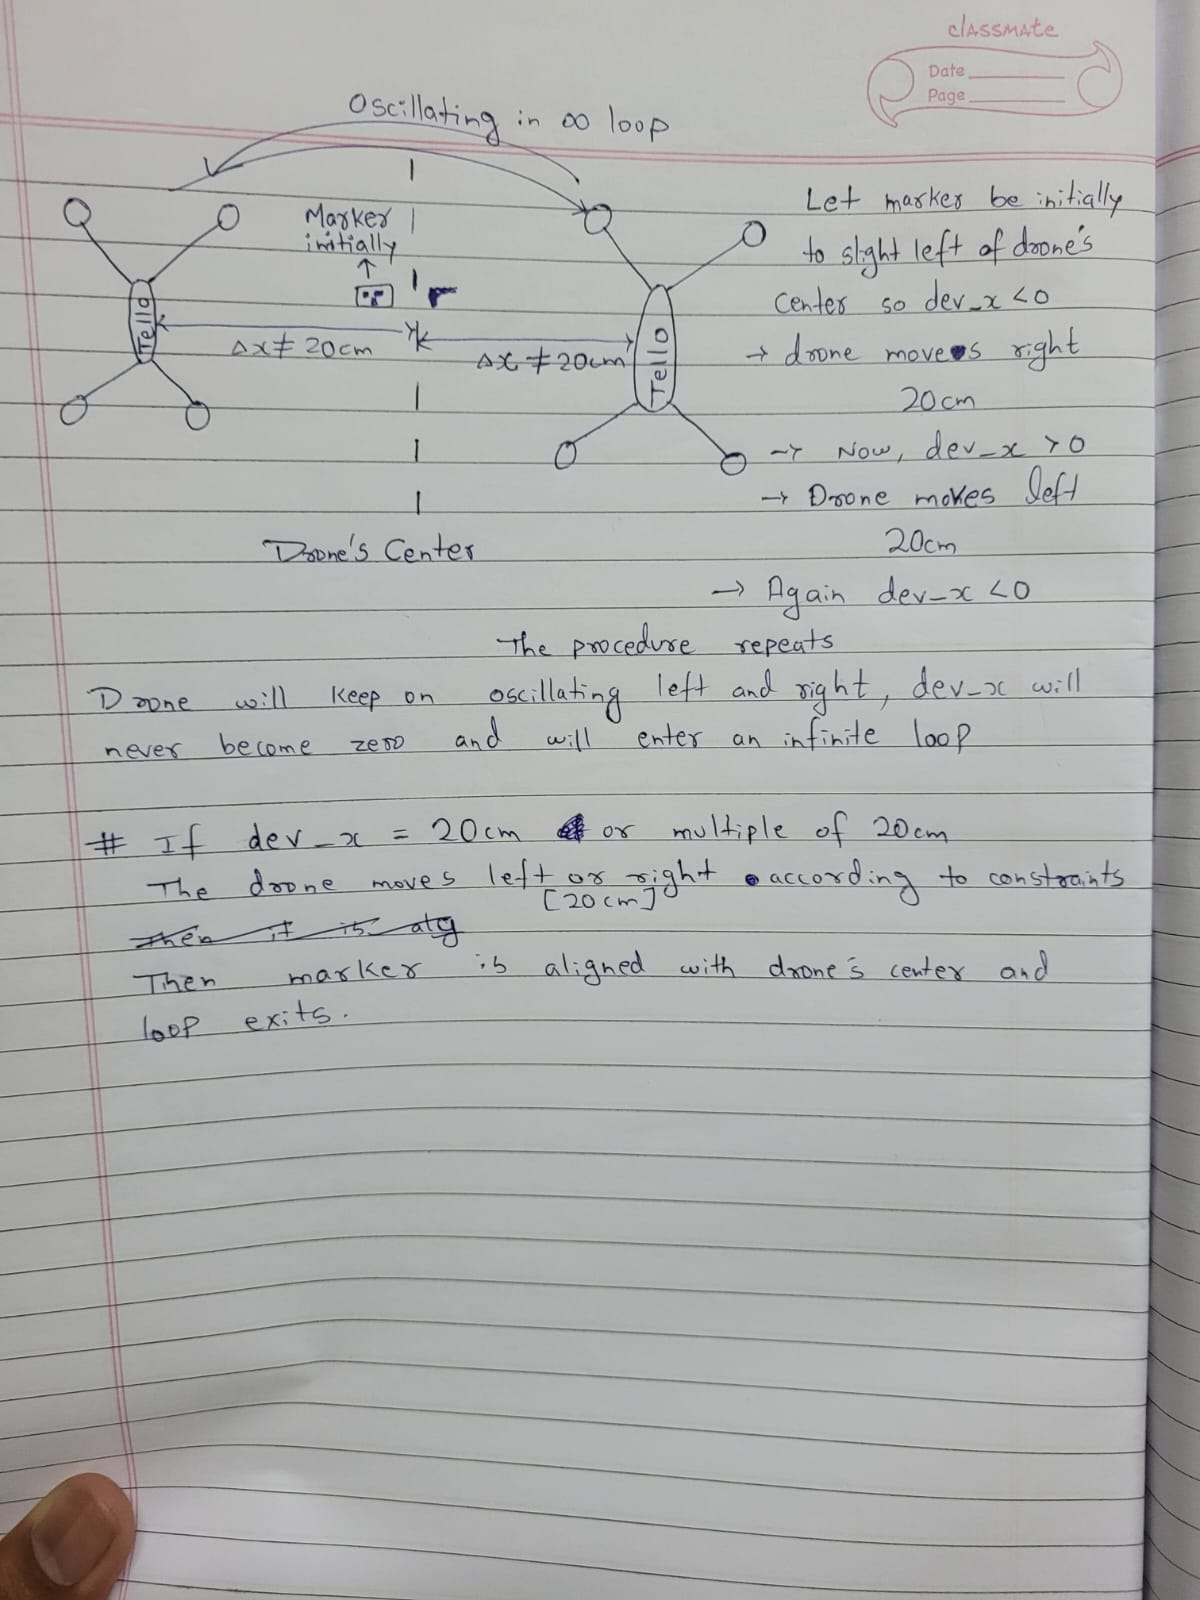 classmate
Date
Page
Oscillating in ∞ loop
Marker
initially
Tello
Δx ≠ 20cm
Δx ≠ 20cm
Tello
Drone's Center
Let marker be initially
to slight left of drone's
Center so dev_x <0
→ drone moves right
20cm
→ Now, dev_x >0
→ Drone moves left
20cm
→ Again dev_x <0
The procedure repeats
Drone will keep on oscillating left and right, dev_x will
never become zero and will enter an infinite loop
# If dev_x = 20cm or multiple of 20cm
The drone moves left or right according to constraints
[20cm]
Then it is alg
Then marker is aligned with drone's center and
loop exits.